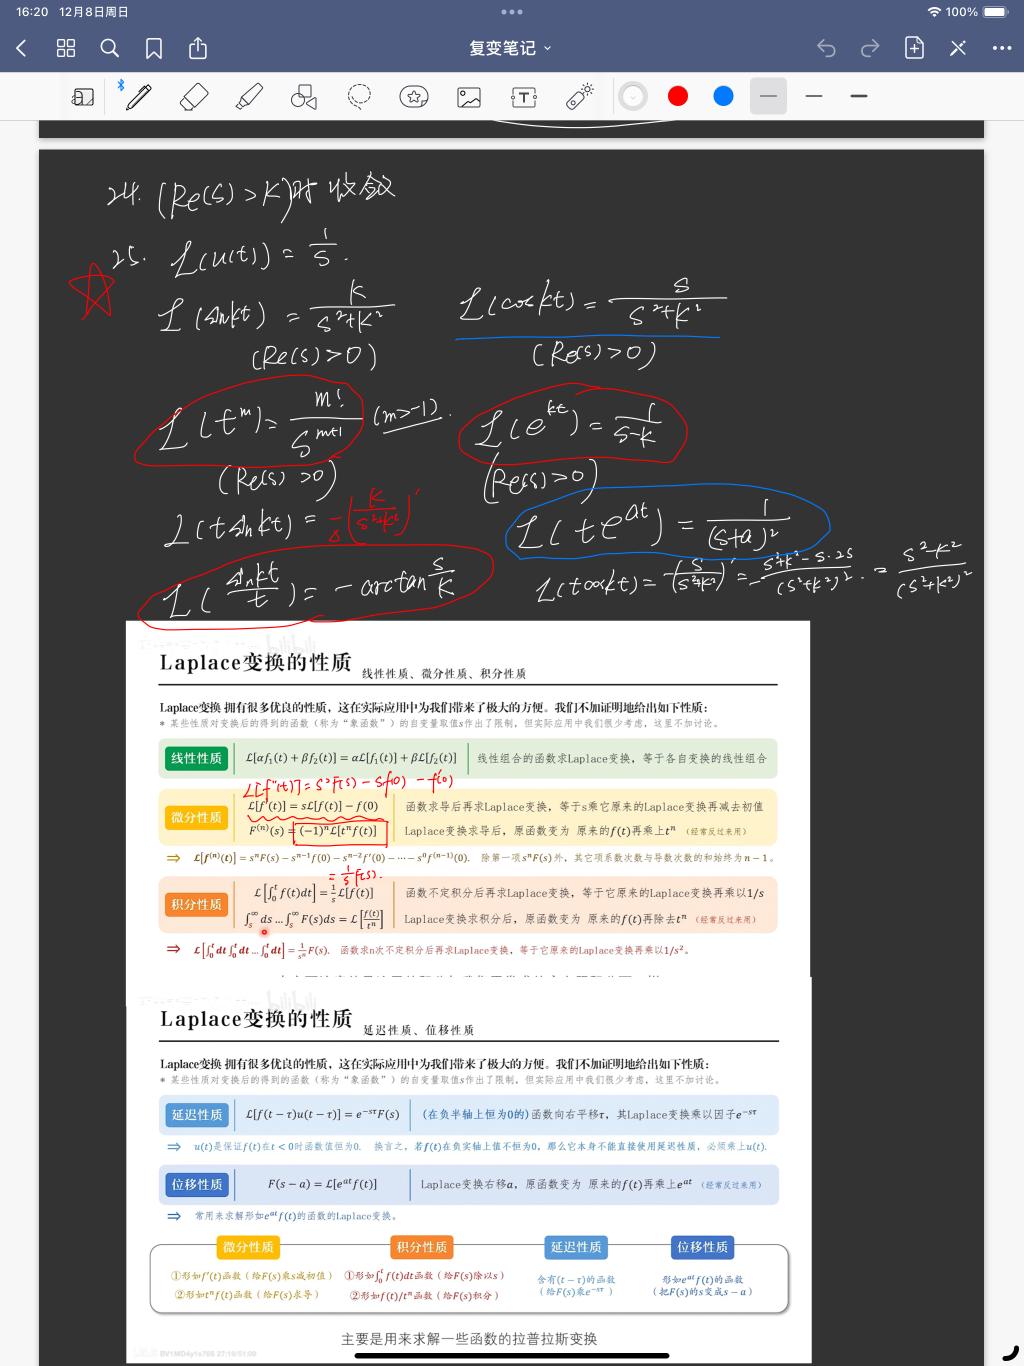 16:20 12月8日周日
100%
复变笔记
24. (Re(s)>K)时 收敛
25. ℒ(u(t)) = 1/s.
ℒ(sinkt) = k/(s²+k²) ℒ(coskt) = s/(s²+k²)
(Re(s)>0) (Re(s)>0)
ℒ(t^m) = m!/s^(m+1) (m>-1). ℒ(e^(kt)) = 1/(s-k)
(Re(s)>0) (Re(s)>0)
ℒ(tsinkt) = -(k/(s²+k²))′ ℒ(te^(at)) = 1/(s+a)²
ℒ(sinkt/t) = -arctan s/k ℒ(tcoskt) = -(s/(s²+k²))′ = -(s²+k²-s·2s)/(s²+k²)². = (s²-k²)/(s²+k²)²
Laplace变换的性质 线性性质、微分性质、积分性质
Laplace变换 拥有很多优良的性质，这在实际应用中为我们带来了极大的方便。我们不加证明地给出如下性质：
* 某些性质对变换后的得到的函数（称为“象函数”）的自变量取值s作出了限制，但实际应用中我们很少考虑，这里不加讨论。
线性性质 ℒ[αf₁(t) + βf₂(t)] = αℒ[f₁(t)] + βℒ[f₂(t)] 线性组合的函数求Laplace变换，等于各自变换的线性组合
ℒ[f″(t)] = s²F(s) - sf(0) - f′(0)
微分性质 ℒ[f′(t)] = sℒ[f(t)] − f(0) 函数求导后再求Laplace变换，等于s乘它原来的Laplace变换再减去初值
F⁽ⁿ⁾(s) = (−1)ⁿℒ[tⁿf(t)] Laplace变换求导后，原函数变为 原来的f(t)再乘上tⁿ （经常反过来用）
⇒ ℒ[f⁽ⁿ⁾(t)] = sⁿF(s) − sⁿ⁻¹f(0) − sⁿ⁻²f′(0) − ⋯ − s⁰f⁽ⁿ⁻¹⁾(0). 除第一项sⁿF(s)外，其它项系数次数与导数次数的和始终为n − 1。
= 1/s F(s).
积分性质 ℒ[∫₀ᵗ f(t)dt] = 1/s ℒ[f(t)] 函数不定积分后再求Laplace变换，等于它原来的Laplace变换再乘以1/s
∫ₛ^∞ ds … ∫ₛ^∞ F(s)ds = ℒ[f(t)/tⁿ] Laplace变换求积分后，原函数变为 原来的f(t)再除去tⁿ （经常反过来用）
⇒ ℒ[∫₀ᵗ dt ∫₀ᵗ dt … ∫₀ᵗ dt] = 1/sⁿ F(s). 函数求n次不定积分后再求Laplace变换，等于它原来的Laplace变换再乘以1/s²。
Laplace变换的性质 延迟性质、位移性质
Laplace变换 拥有很多优良的性质，这在实际应用中为我们带来了极大的方便。我们不加证明地给出如下性质：
* 某些性质对变换后的得到的函数（称为“象函数”）的自变量取值s作出了限制，但实际应用中我们很少考虑，这里不加讨论。
延迟性质 ℒ[f(t − τ)u(t − τ)] = e^(−sτ)F(s) （在负半轴上恒为0的）函数向右平移τ，其Laplace变换乘以因子e^(−sτ)
⇒ u(t)是保证f(t)在t < 0时函数值恒为0. 换言之，若f(t)在负实轴上值不恒为0，那么它本身不能直接使用延迟性质，必须乘上u(t).
位移性质 F(s − a) = ℒ[e^(at)f(t)] Laplace变换右移a，原函数变为 原来的f(t)再乘上e^(at) （经常反过来用）
⇒ 常用来求解形如e^(at)f(t)的函数的Laplace变换。
微分性质 积分性质 延迟性质 位移性质
①形如f′(t)函数（给F(s)乘s减初值） ①形如∫₀ᵗ f(t)dt函数（给F(s)除以s） 含有(t − τ)的函数 形如e^(at)f(t)的函数
②形如tⁿf(t)函数（给F(s)求导） ②形如f(t)/tⁿ函数（给F(s)积分） （给F(s)乘e^(−sτ)） （把F(s)的s变成s − a）
主要是用来求解一些函数的拉普拉斯变换